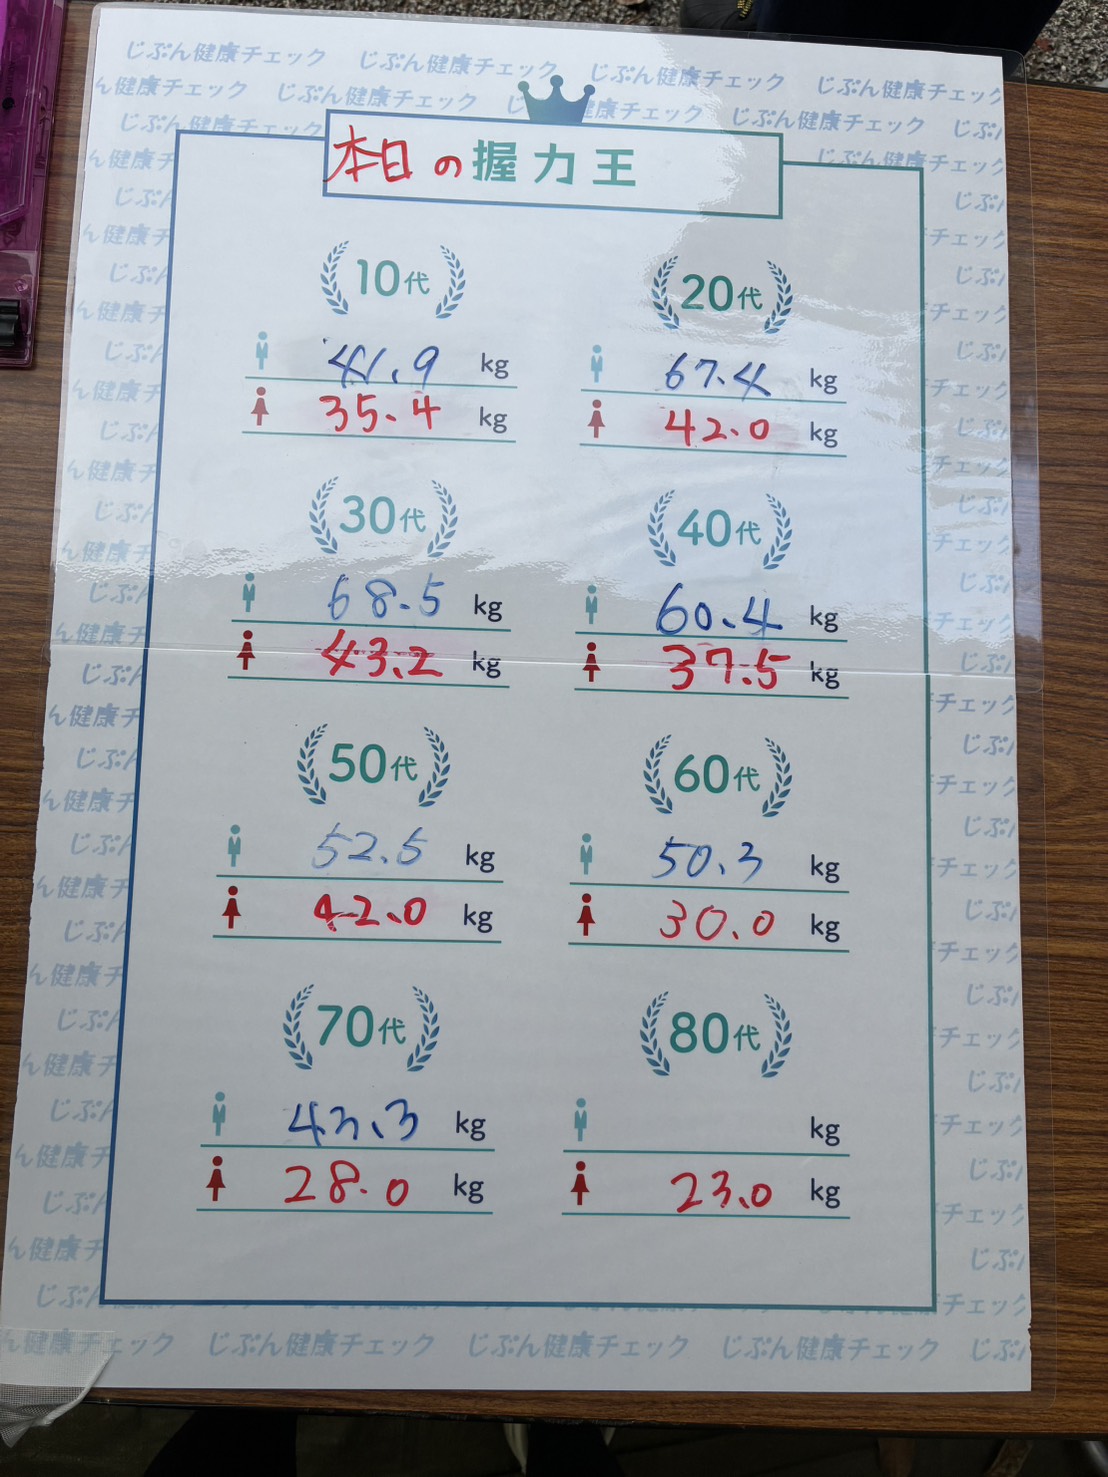 じぶん健康チェック じぶん健康チェック じぶん健康チェック じぶん健康チェック
本日の握力王
10代
41.9 kg
35.4 kg
20代
67.4 kg
42.0 kg
30代
68.5 kg
43.2 kg
40代
60.4 kg
37.5 kg
50代
52.5 kg
42.0 kg
60代
50.3 kg
30.0 kg
70代
43.3 kg
28.0 kg
80代
kg
23.0 kg
じぶん健康チェック じぶん健康チェック じぶん健康チェック